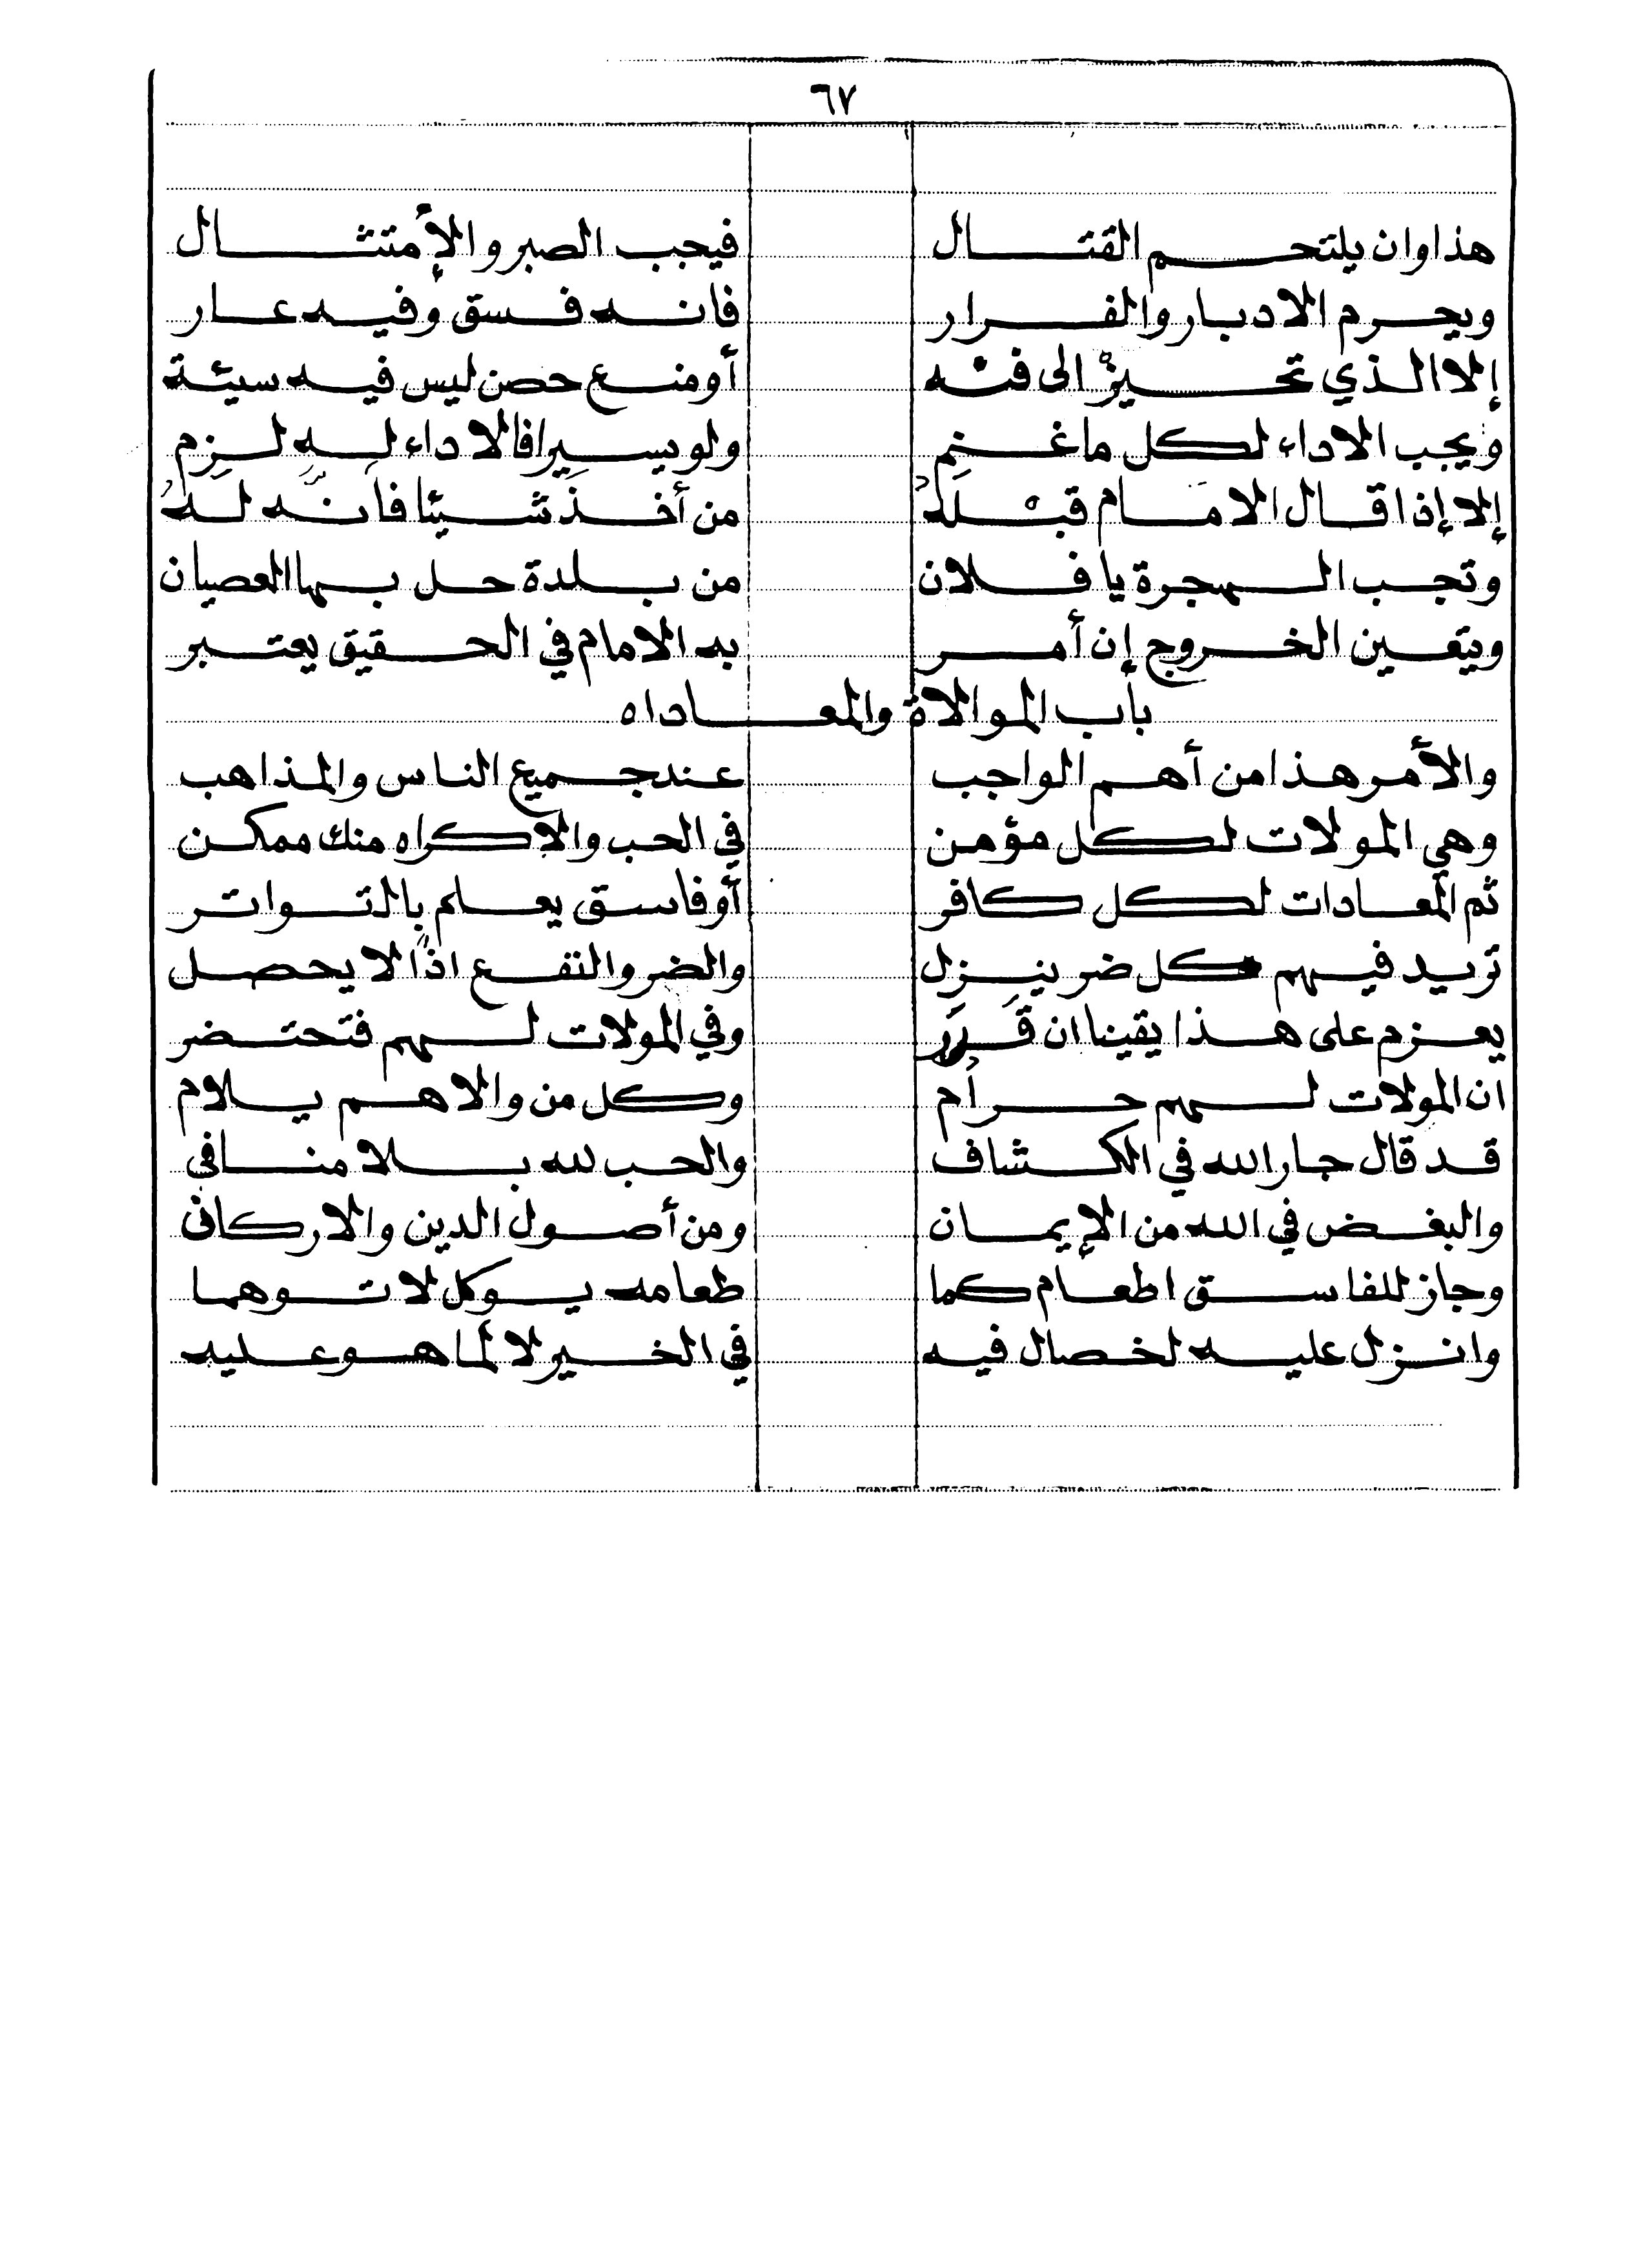 ٦٧
هذا وان يلتحم القتال فيجب الصبر والأمتثال
ويحرم الادبار والفرار فانه فسق وفيه عار
إلا الذي تحيزْ الى فئه أو منع حصن ليس فيه سيئة
ويجب الاداء لكل ما غنم ولو يسيرا فالاداء له لزم
إلا إذا قال الامام قبْلَهُ من أخذ شيئا فأنّه لَهُ
وتجب الهجرة يا فلان من بلدة حل بها العصيان
ويتعين الخروج إن أمر به الامام في الحقيق يعتبر
باب الموالاة والمعاداه
والأمر هذا من أهم الواجب عند جميع الناس والمذاهب
وهي المولات لكل مؤمن في الحب والاكراه منك ممكن
ثم المعادات لكل كافر أو فاسق يعلم بالتواتر
تريد فيهم كل ضر ينزل والضر والنفع اذاً لا يحصل
يعزم على هذا يقينا ان قَرَر وفي المولات لهم فتحتضر
ان المولات لهم حرام وكل من والاهم يلام
قد قال جار الله في الكشاف والحب لله بلا منافي
والبغض في الله من الإيمان ومن أصول الدين والاركان
وجاز للفاسق اطعام كما طعامه يوكل لا توهما
وانزل عليه لخصال فيه في الخير لا لما هو عليه